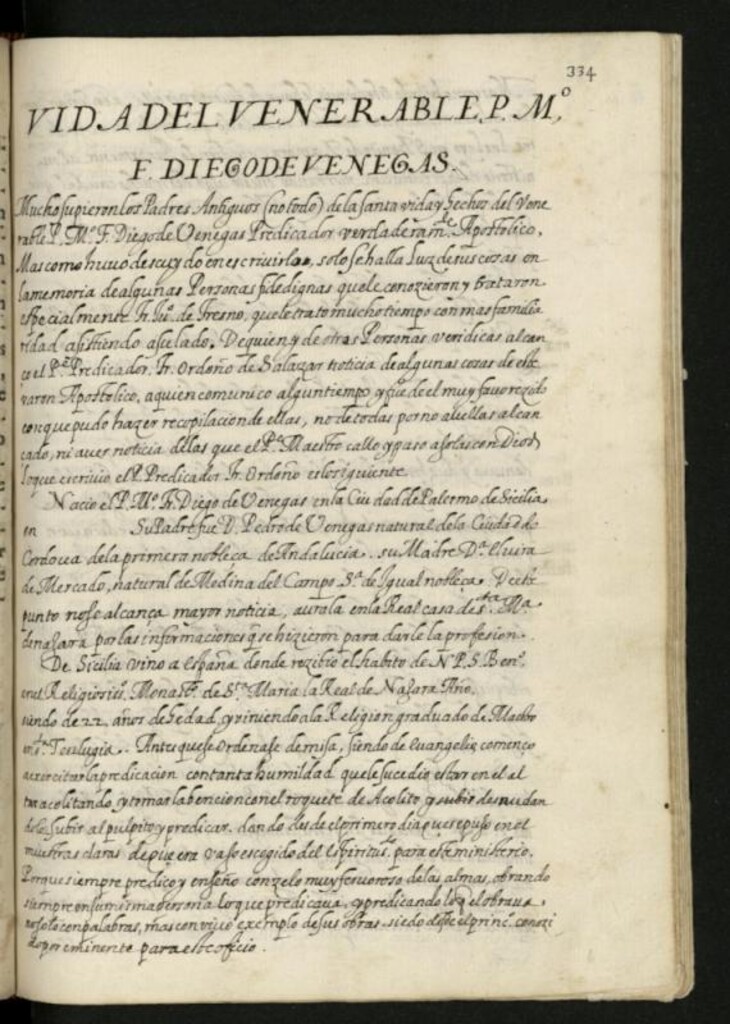 334
VIDA DEL VENERABLE. P. M.º
F. DIEGO DE VENEGAS.
Mucho supieron los Padres Antiguos (no todo) de la santa vida y hechos del Vene
rable P. Mº. F. Diego de Venegas Predicador verdaderamᵗᵉ Apostolico.
Mas como huuo descuydo en escriuirlas, solo se halla Luz de sus cosas en
la memoria de algunas Personas fidedignas que le conozieron y trataron.
especialmente fr. Juº. de Fresno, que le trato mucho tiempo con mas familia
ridad asistiendo a su lado. De quien y de otras Personas veridicas alcan
ço el Pᵉ Predicador. fr. Ordoño de Salazar noticia de algunas cosas de este
varon Apostolico, a quien comunico algun tiempo y fue de el muy fauorezido
con que pudo hazer recopilacion de ellas, no de todas por no auellas alcan
çado, ni auer noticia dellas que el Pᵉ Maestro callo y paso a solas con Dios
lo que escriuio el P. Predicador fr. Ordoño es lo siguiente.
Nacio el P. Mº. fr. Diego de Venegas en la Ciudad de Palermo de Sicilia
en Su Padre fue D. Pedro de Venegas natural de la Ciudad de
Cordoua de la primera nobleça de Andalucia. su Madre Dª. Eluira
de Mercado, natural de Medina del Campo Sª. de igual nobleça. De este
punto no se alcança mayor noticia, aurola en la Real casa de sᵗᵃ. Mª
de naxara por las informaciones q se hizieron para darle la profesion.
De Sicilia vino a España donde rezibio el habito de N. P. S. Benº.
en el Religiosisº. Monastº. de Sᵗᵃ Maria la Real de Naxara Año.
siendo de 22. años de hedad, y viniendo a la Religion graduado de Maestro
en Sᵗᵃ. Teulugia. Antes que se ordenase de misa, siendo de euangelio començo
a exercitar la predicacion con tanta humildad que le sucedio estar en el al
tar acolitando, y tomar la bendicion con el roquete de Acolito, y subir desnudan
dole subir al pulpito y predicar. dando desde el primero dia que se puso en el
muestras claras de que era vaso escogido del Espiritu sᵗᵒ. para este ministerio.
Porque siempre predico y enseño con zelo muy feruoroso de las almas, obrando
siempre en su misma persona lo que predicaua, y predicando lo q el obraua.
no solo con palabras, mas con viuo exemplo de sus obras. siendo desde el princº. conozi
do por eminente para este oficio.